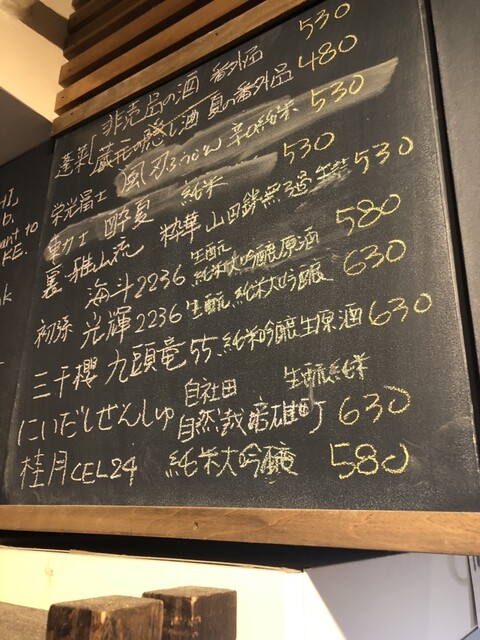 蓬莱「非売品の酒 番外品 530
蔵元の隠し酒 夏の番外品 480
栄光冨士 風刃 ふうじん 辛口純米 530
東力士 酔夏 純米 530
裏・雅山流 粋華 山田錦無濾過生詰 530
海斗2236 生酛 純米大吟醸原酒 580
初緑 光輝2236 生酛 純米大吟醸 630
三千櫻 九頭竜55 純米吟醸生原酒 630
にいだしぜんしゅ 自社田 生酛純米
自然栽培雄町 630
桂月 CEL24 純米大吟醸 580